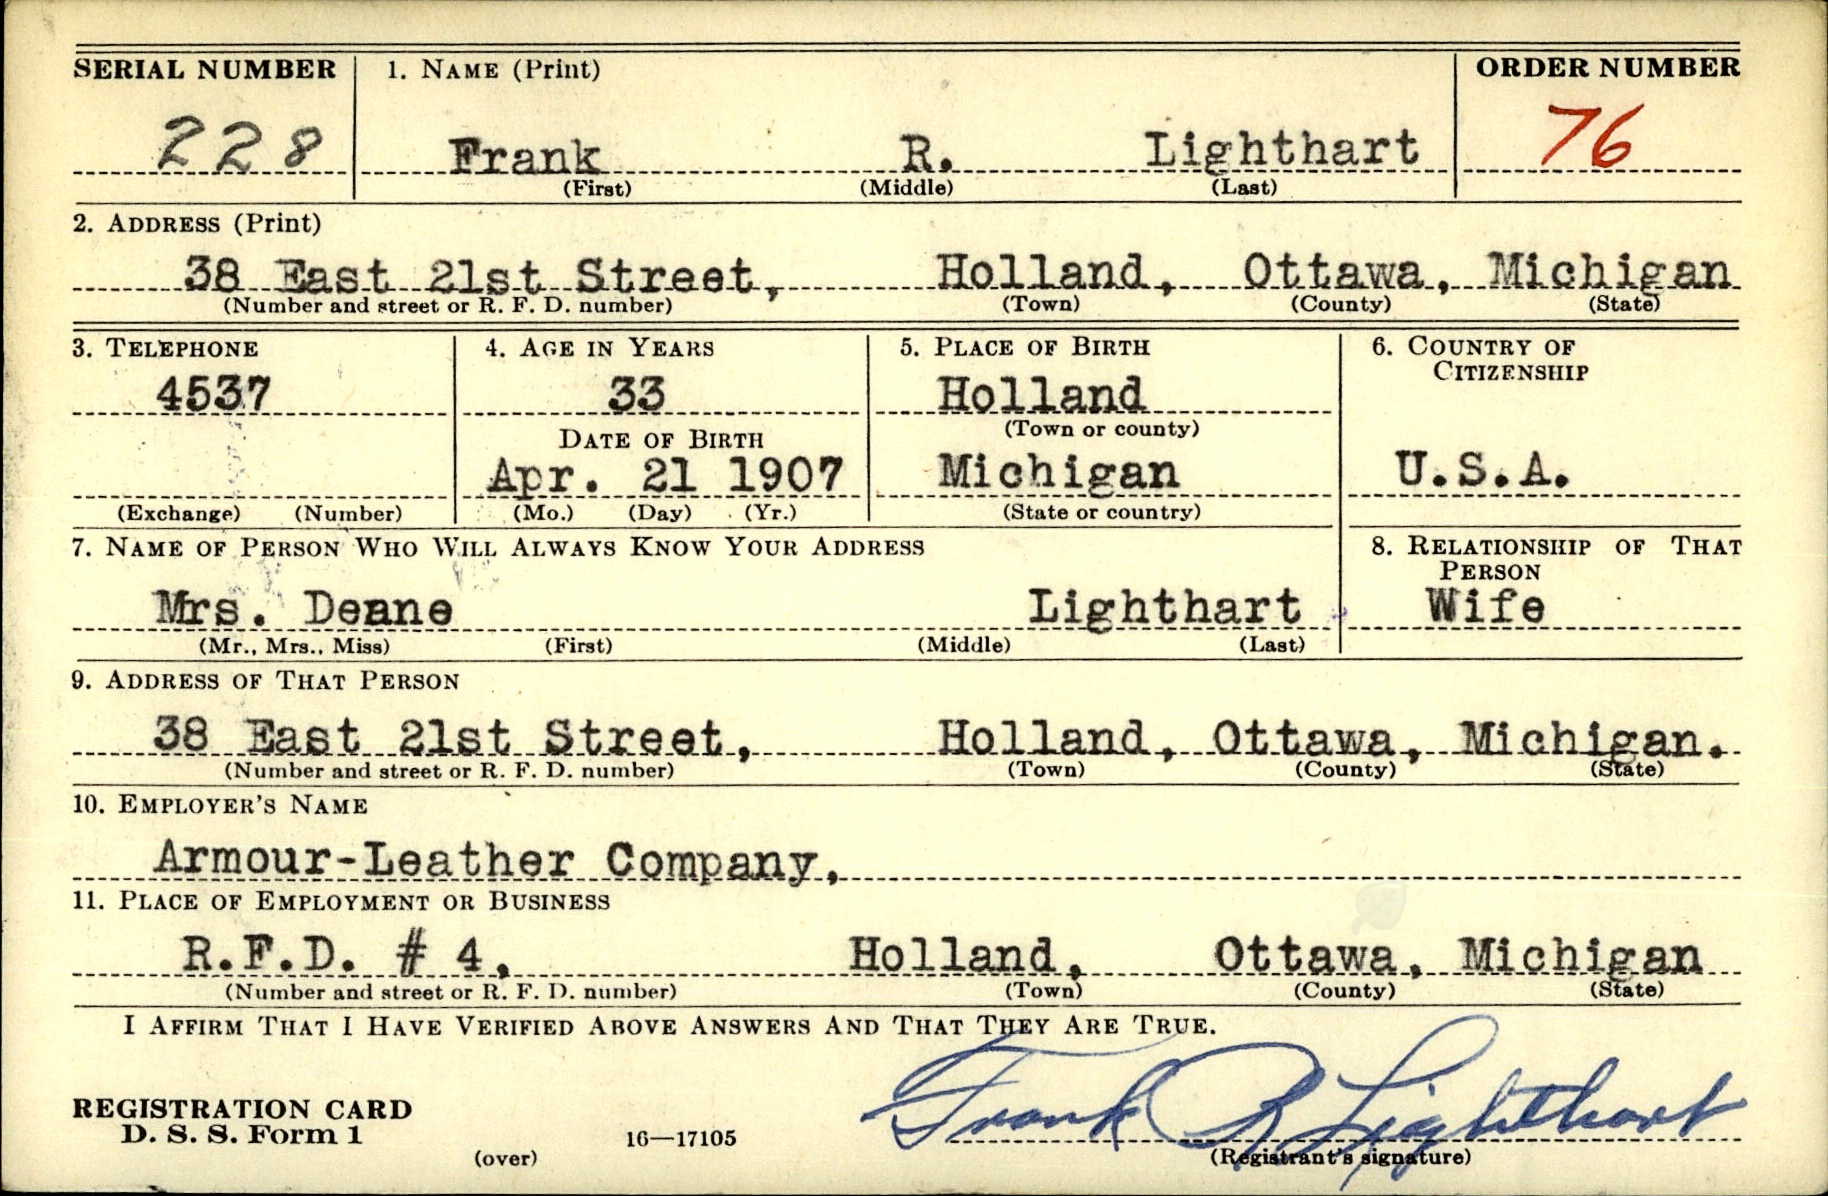 SERIAL NUMBER 1. NAME (Print) ORDER NUMBER
228 Frank R. Lighthart 76
(First) (Middle) (Last)
2. ADDRESS (Print)
38 East 21st Street, Holland, Ottawa, Michigan
(Number and street or R. F. D. number) (Town) (County) (State)
3. TELEPHONE 4. AGE IN YEARS 5. PLACE OF BIRTH 6. COUNTRY OF
CITIZENSHIP
4537 33 Holland
DATE OF BIRTH (Town or county)
Apr. 21 1907 Michigan U.S.A.
(Exchange) (Number) (Mo.) (Day) (Yr.) (State or country)
7. NAME OF PERSON WHO WILL ALWAYS KNOW YOUR ADDRESS 8. RELATIONSHIP OF THAT
PERSON
Mrs. Deane Lighthart Wife
(Mr., Mrs., Miss) (First) (Middle) (Last)
9. ADDRESS OF THAT PERSON
38 East 21st Street, Holland, Ottawa, Michigan.
(Number and street or R. F. D. number) (Town) (County) (State)
10. EMPLOYER'S NAME
Armour-Leather Company,
11. PLACE OF EMPLOYMENT OR BUSINESS
R.F.D. # 4, Holland, Ottawa, Michigan
(Number and street or R. F. D. number) (Town) (County) (State)
I AFFIRM THAT I HAVE VERIFIED ABOVE ANSWERS AND THAT THEY ARE TRUE.
Frank R Lighthart
REGISTRATION CARD
D. S. S. Form 1 16—17105
(over) (Registrant's signature)